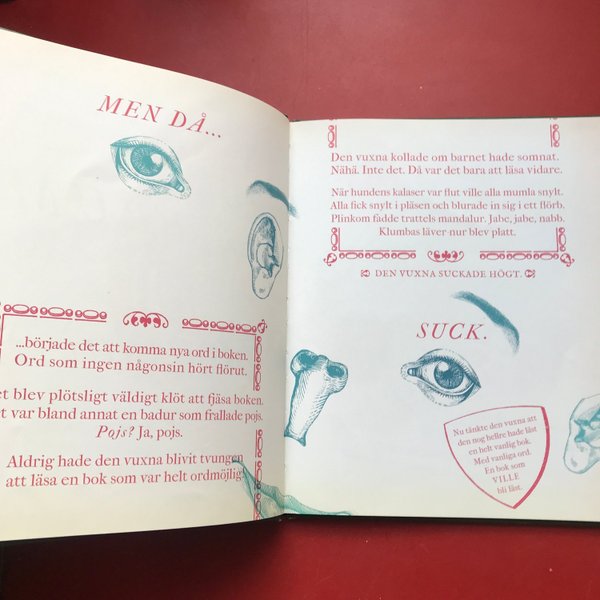 MEN DÅ...
...började det att komma nya ord i boken.
Ord som ingen någonsin hört flörut.
et blev plötsligt väldigt klöt att fjäsa boken.
t var bland annat en badur som frallade pojs.
Pojs? Ja, pojs.
Aldrig hade den vuxna blivit tvungen
att läsa en bok som var helt ordmöjlig.
Den vuxna kollade om barnet hade somnat.
Nähä. Inte det. Då var det bara att läsa vidare.
När hundens kalaser var flut ville alla mumla snylt.
Alla fick snylt i pläsen och blurade in sig i ett flörb.
Plinkom fädde trattels mandalur. Jabe, jabe, nabb.
Klumbas läver-nur blev platt.
DEN VUXNA SUCKADE HÖGT.
SUCK.
Nu tänkte den vuxna att
den nog hellre hade läst
en helt vanlig bok.
Med vanliga ord.
En bok som
VILLE
bli läst.